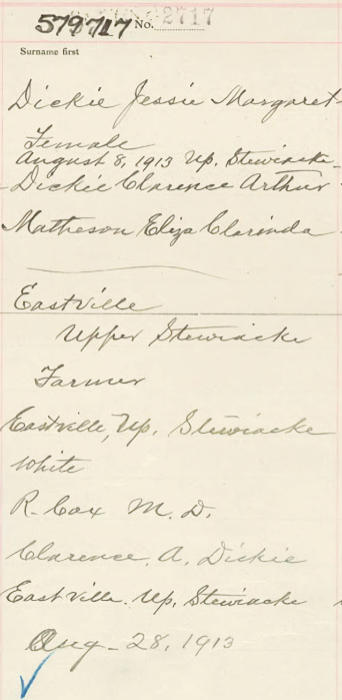 579717 No. 2717
Surname first
Dickie Jessie Margaret
Female
August 8, 1913 Up. Stewiacke
Dickie Clarence Arthur
Matheson Eliza Clarinda
Eastville
Upper Stewiacke
Farmer
Eastville, Up. Stewiacke
White
R. Cox M. D.
Clarence. A. Dickie
Eastville. Up. Stewiacke
Aug - 28, 1913